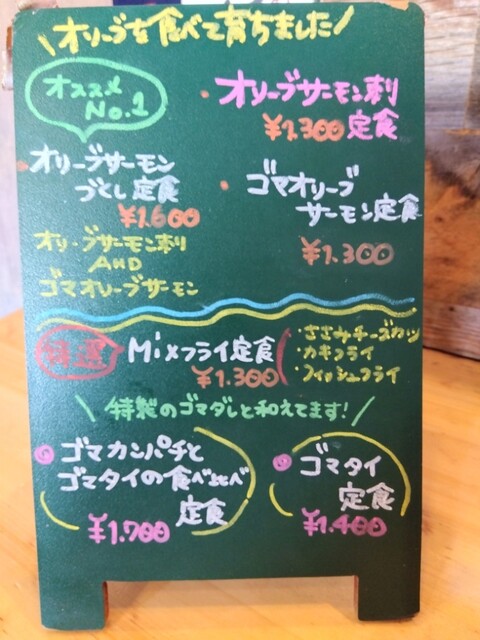 オリーブを食べて育ちました
オススメ
No.1
オリーブサーモン刺
¥1.300 定食
オリーブサーモン
づくし定食
¥1.600
オリーブサーモン刺
AND
ゴマオリーブサーモン
ゴマオリーブ
サーモン定食
¥1.300
特選
Mixフライ定食
¥1.300
・ささみチーズカツ
・カキフライ
・フィッシュフライ
特製のゴマダレと和えてます!
ゴマカンパチと
ゴマタイの食べ比べ
定食
¥1.700
ゴマタイ
定食
¥1.400